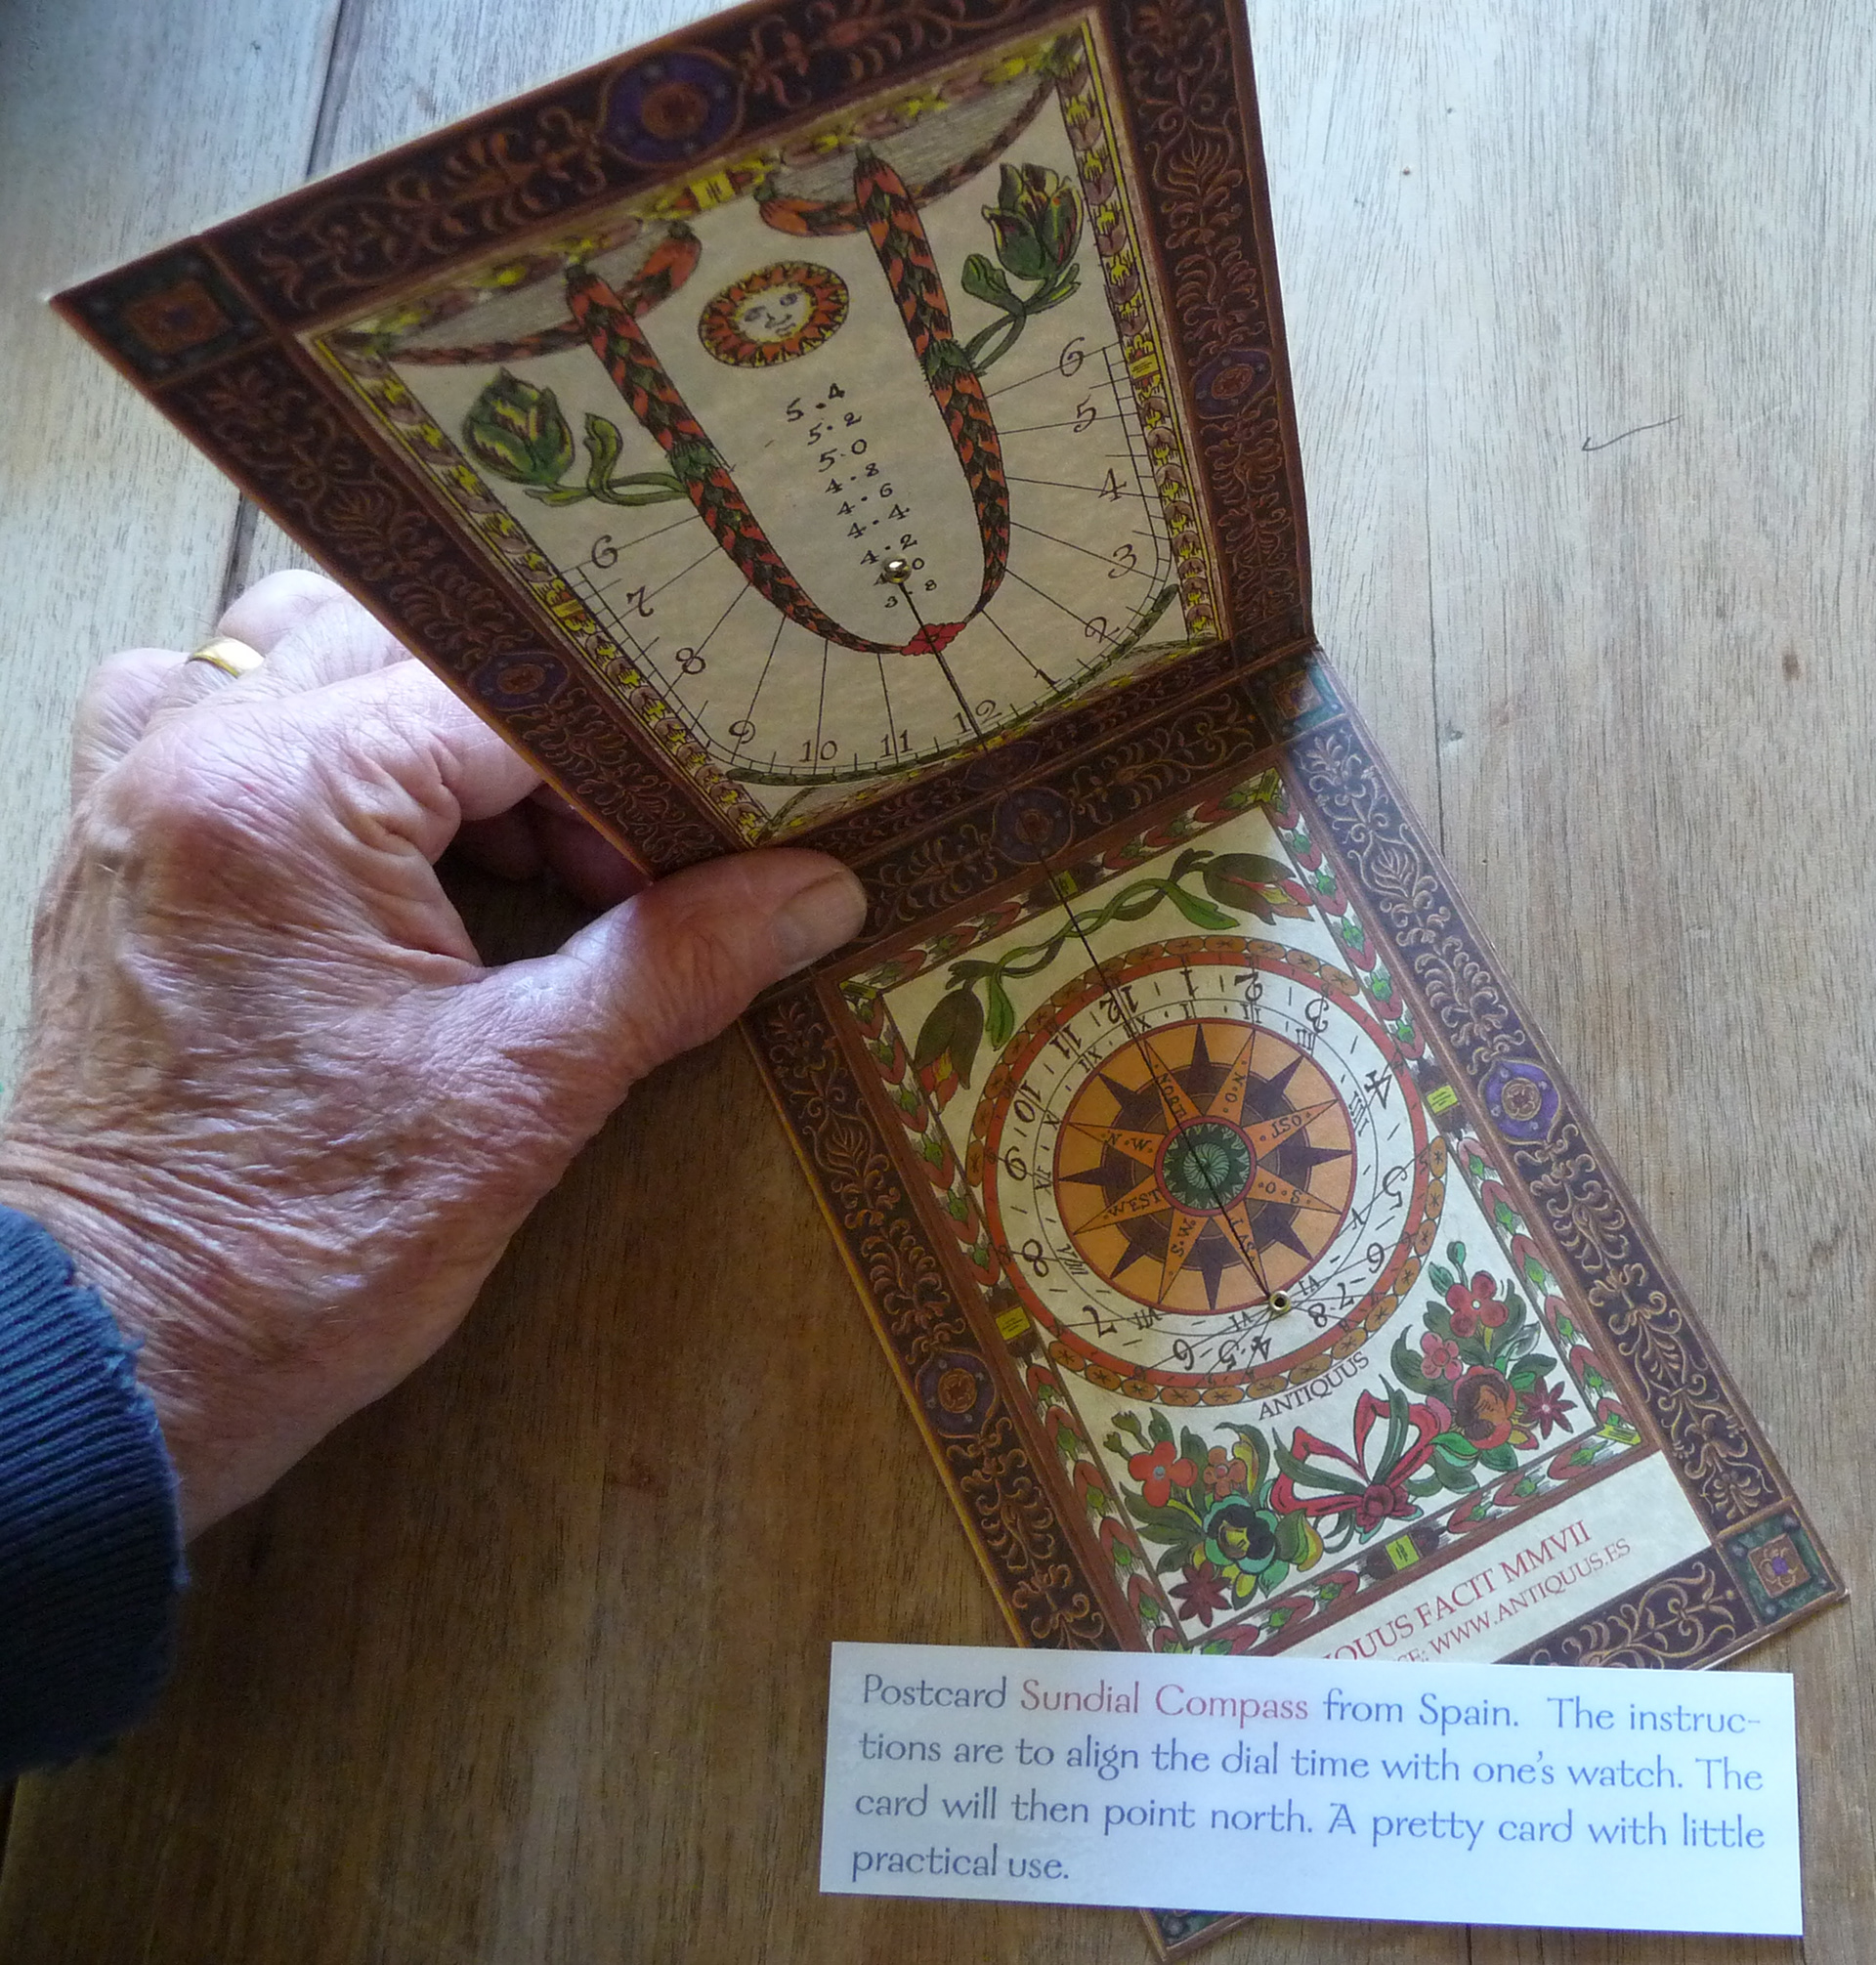 5.4
5.2
5.0
4.8
4.6
4.4
4.2
3.8
6
5
4
3
2
1
12
11
10
9
8
7
6
12 1 2 3 4 5 6 7 8
11 10 9 8 7 6 5 4
XII I II III IIII
VI VI VII VIII IX X XI
NORD
N.O.
OST
S.O.
S.W.
WEST
N.W.
ANTIQUUS
FACIT MMVII
WWW.ANTIQUUS.ES
Postcard Sundial Compass from Spain. The instruc-
tions are to align the dial time with one's watch. The
card will then point north. A pretty card with little
practical use.